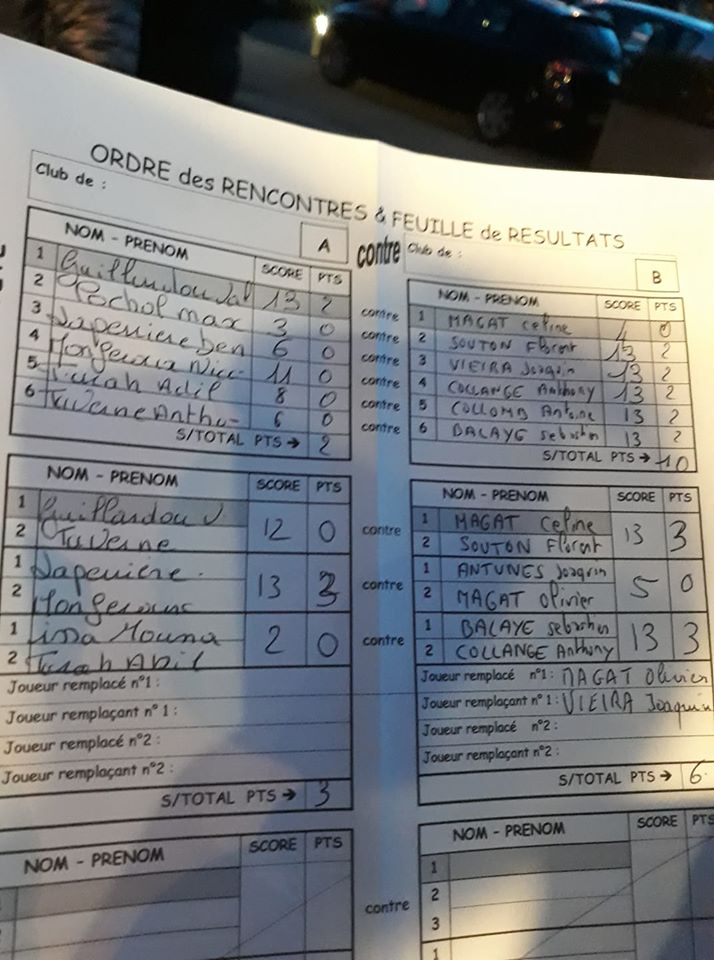 ORDRE des RENCONTRES & FEUILLE de RESULTATS
Club de :
A
contre
Club de :
B
NOM - PRENOM SCORE PTS
1 Guillandou Val 13 2
2 Pochol max 3 0
3 Laperriere Ben 6 0
4 Mongeroux 11 0
5 Turah Adil 8 0
6 Taverne Antho 6 0
S/TOTAL PTS → 2
contre
contre
contre
contre
contre
contre
NOM - PRENOM SCORE PTS
1 MAGAT Celine 4 0
2 SOUTON Florent 13 2
3 VIEIRA Joaquin 13 2
4 COLLANGE Anthony 13 2
5 COLLOMB Antoine 13 2
6 BALAYE sebastien 13 2
S/TOTAL PTS → 10
NOM - PRENOM SCORE PTS
1 Guillandou V. 12 0
2 Taverne
1 Laperrière. 13 3
2 Mongeroux
1 issa Mouna 2 0
2 Turah Adil
Joueur remplacé n°1 :
Joueur remplaçant n° 1 :
Joueur remplacé n°2 :
Joueur remplaçant n°2 :
S/TOTAL PTS → 3
contre
contre
contre
NOM - PRENOM SCORE PTS
1 MAGAT Celine 13 3
2 SOUTON Florent
1 ANTUNES Joaquin 5 0
2 MAGAT Olivier
1 BALAYE sebastien 13 3
2 COLLANGE Anthony
Joueur remplacé n°1 : MAGAT Olivier
Joueur remplaçant n° 1 : VIEIRA Joaquin
Joueur remplacé n°2 :
Joueur remplaçant n°2 :
S/TOTAL PTS → 6
NOM - PRENOM SCORE PTS
contre
NOM - PRENOM SCORE PTS
1
2
3
1